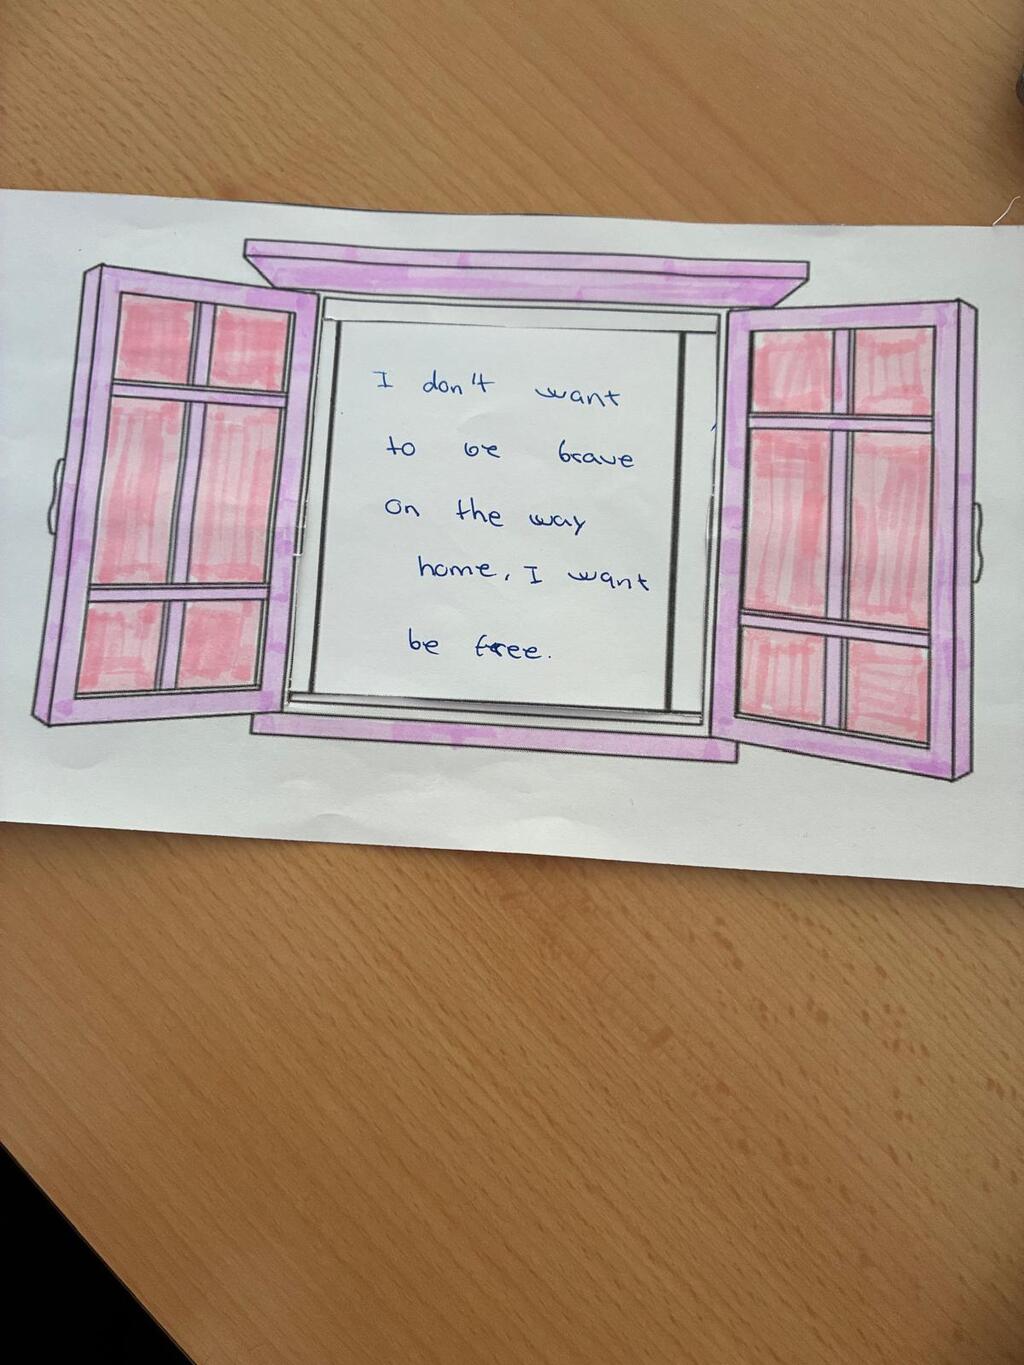 I don't want
to be brave
on the way
home, I want
be free.